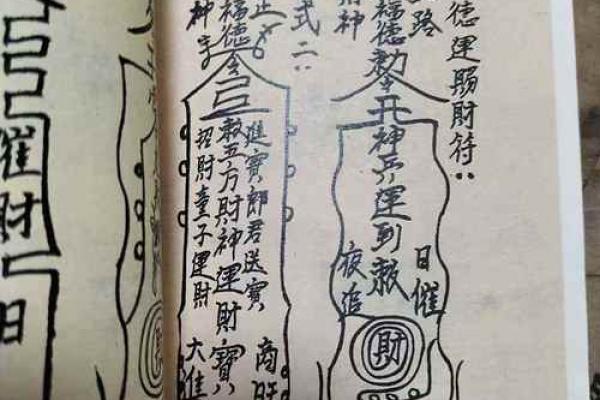 德運賜財符：
路
福德勅令
神兵運到敕
日催
夜追
財
財神
式二：
福德
敕五方財神運財寶
進寶郎君送寶
招財童子運財
商旺
大進
神字
催財
日